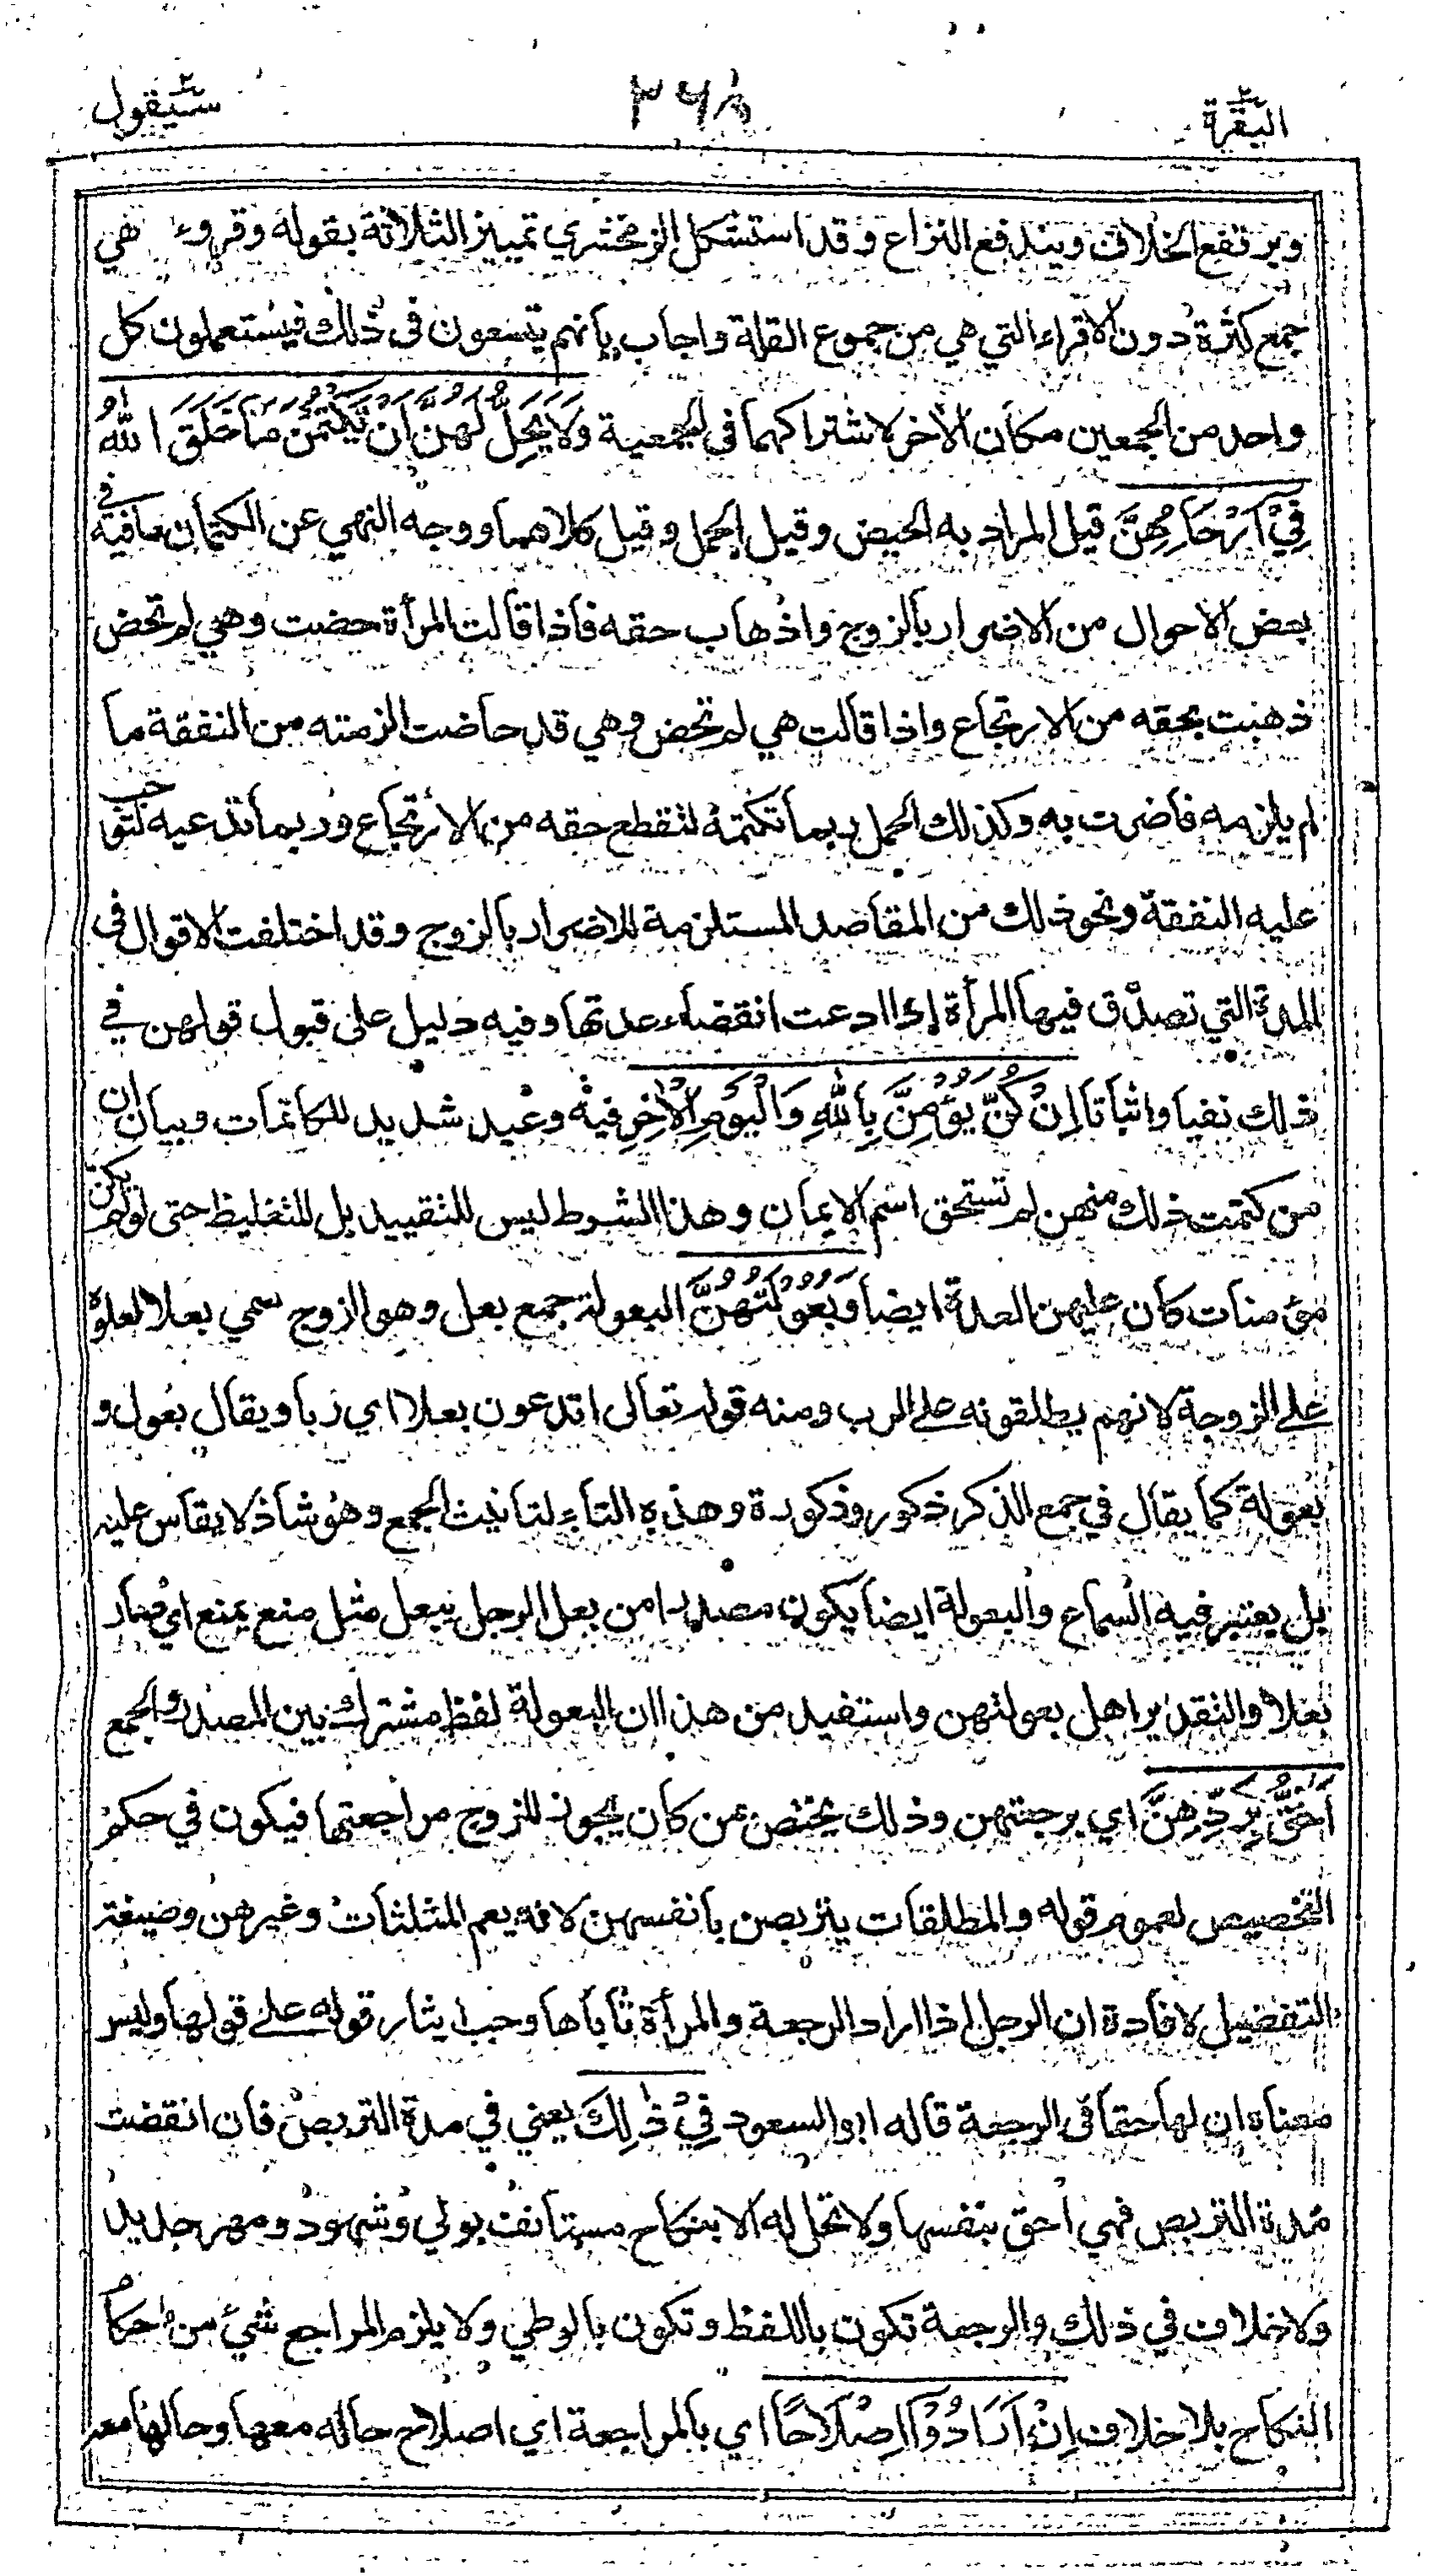 البقرة ٢
٢٦٨
سيقول ٢
ويرتفع الخلاف ويندفع النزاع وقد استشكل الزمخشري تمييز الثلاثة بقوله وقروء هي
جمع كثرة دون الاقراء التي هي من جموع القلة واجاب بانهم يتسعون في ذلك فيستعملون كل
واحد من الجمعين مكان الآخر لاشتراكهما في الجمعية وَلَا يَحِلُّ لَهُنَّ اَنْ يَّكْتُمْنَ مَا خَلَقَ اللهُ
فِيْٓ اَرْحَامِهِنَّ قيل المراد به الحيض وقيل الحمل وقيل كلاهما ووجه النهي عن الكتمان ما فيه في
بعض الاحوال من الاضرار بالزوج واذهاب حقه فاذا قالت المرأة حضت وهي لم تحض
ذهبت بحقه من الارتجاع واذا قالت هي لم تحض وهي قد حاضت الزمته من النفقة ما
لم يلزمه فاضرت به وكذلك الحمل ربما تكتمه لتقطع حقه من الارتجاع وربما تدعيه لتوجب
عليه النفقة ونحو ذلك من المقاصد المستلزمة للاضرار بالزوج وقد اختلفت الاقوال في
المدة التي تصدق فيها المرأة اذا ادعت انقضاء عدتها وفيه دليل على قبول قولهن في
ذلك نفيا واثباتا اِنْ كُنَّ يُؤْمِنَّ بِاللهِ وَالْيَوْمِ الْاٰخِرِ فيه وعيد شديد للكاتمات وبيان ان
من كتمت ذلك منهن لم تستحق اسم الايمان وهذا الشرط ليس للتقييد بل للتغليظ حتى لو لم يكن
مؤمنات كان عليهن العدة ايضا وَبُعُوْلَتُهُنَّ البعولة جمع بعل وهو الزوج سمي بعلا لعلوه
على الزوجة لانهم يطلقونه على الرب ومنه قوله تعالى اتدعون بعلا اي ربا ويقال بعول و
بعولة كما يقال في جمع الذكر ذكور وذكورة وهذه التاء لتانيث الجمع وهو شاذ لا يقاس عليه
بل يعتبر فيه السماع والبعولة ايضا يكون مصدرا من بعل الرجل يبعل مثل منع يمنع اي صار
بعلا والتقدير اهل بعولتهن واستفيد من هذا ان البعولة لفظ مشترك بين المصدر والجمع
اَحَقُّ بِرَدِّهِنَّ اي برجعتهن وذلك يختص بمن كان يجوز للزوج مراجعتها فيكون في حكم
التخصيص لعموم قوله والمطلقات يتربصن بانفسهن لانه يعم المثلثات وغيرهن وصيغة
التفضيل لافادة ان الرجل اذا اراد الرجعة والمرأة تأباها وجب ايثار قوله على قولها وليس
معناه ان لها حقا في الرجعة قاله ابو السعود فِيْ ذٰلِكَ يعني في مدة التربص فان انقضت
مدة التربص فهي احق بنفسها ولا تحل له الا بنكاح مستأنف بولي وشهود ومهر جديد
ولا خلاف في ذلك والرجعة تكون باللفظ وتكون بالوطي ولا يلزم المراجع شيء من احكام
النكاح بلا خلاف اِنْ اَرَادُوْٓا اِصْلَاحًا اي بالمراجعة اي اصلاح حاله معها وحالها معه